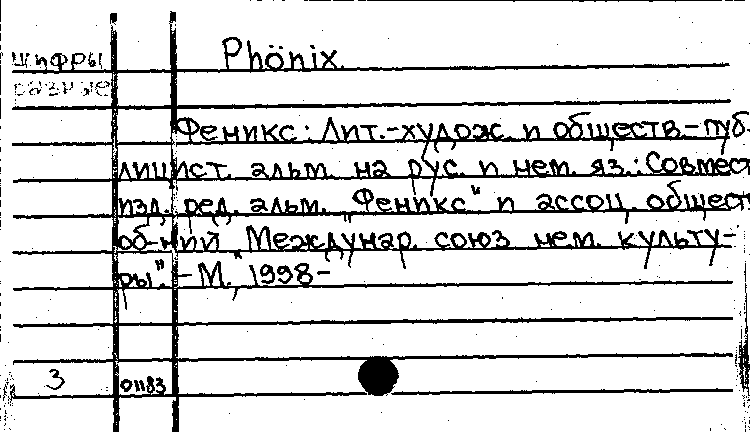 Phönix.
шифры
разные
Феникс: Лит.-худож. и обществ.-пуб-
лицист. альм. на рус. и нем. яз.: Совмест
изд. ред. альм. „Феникс" и ассоц. обществ
об-ний „Междунар. союз нем. культу-
ры". - М., 1998-
3 01183